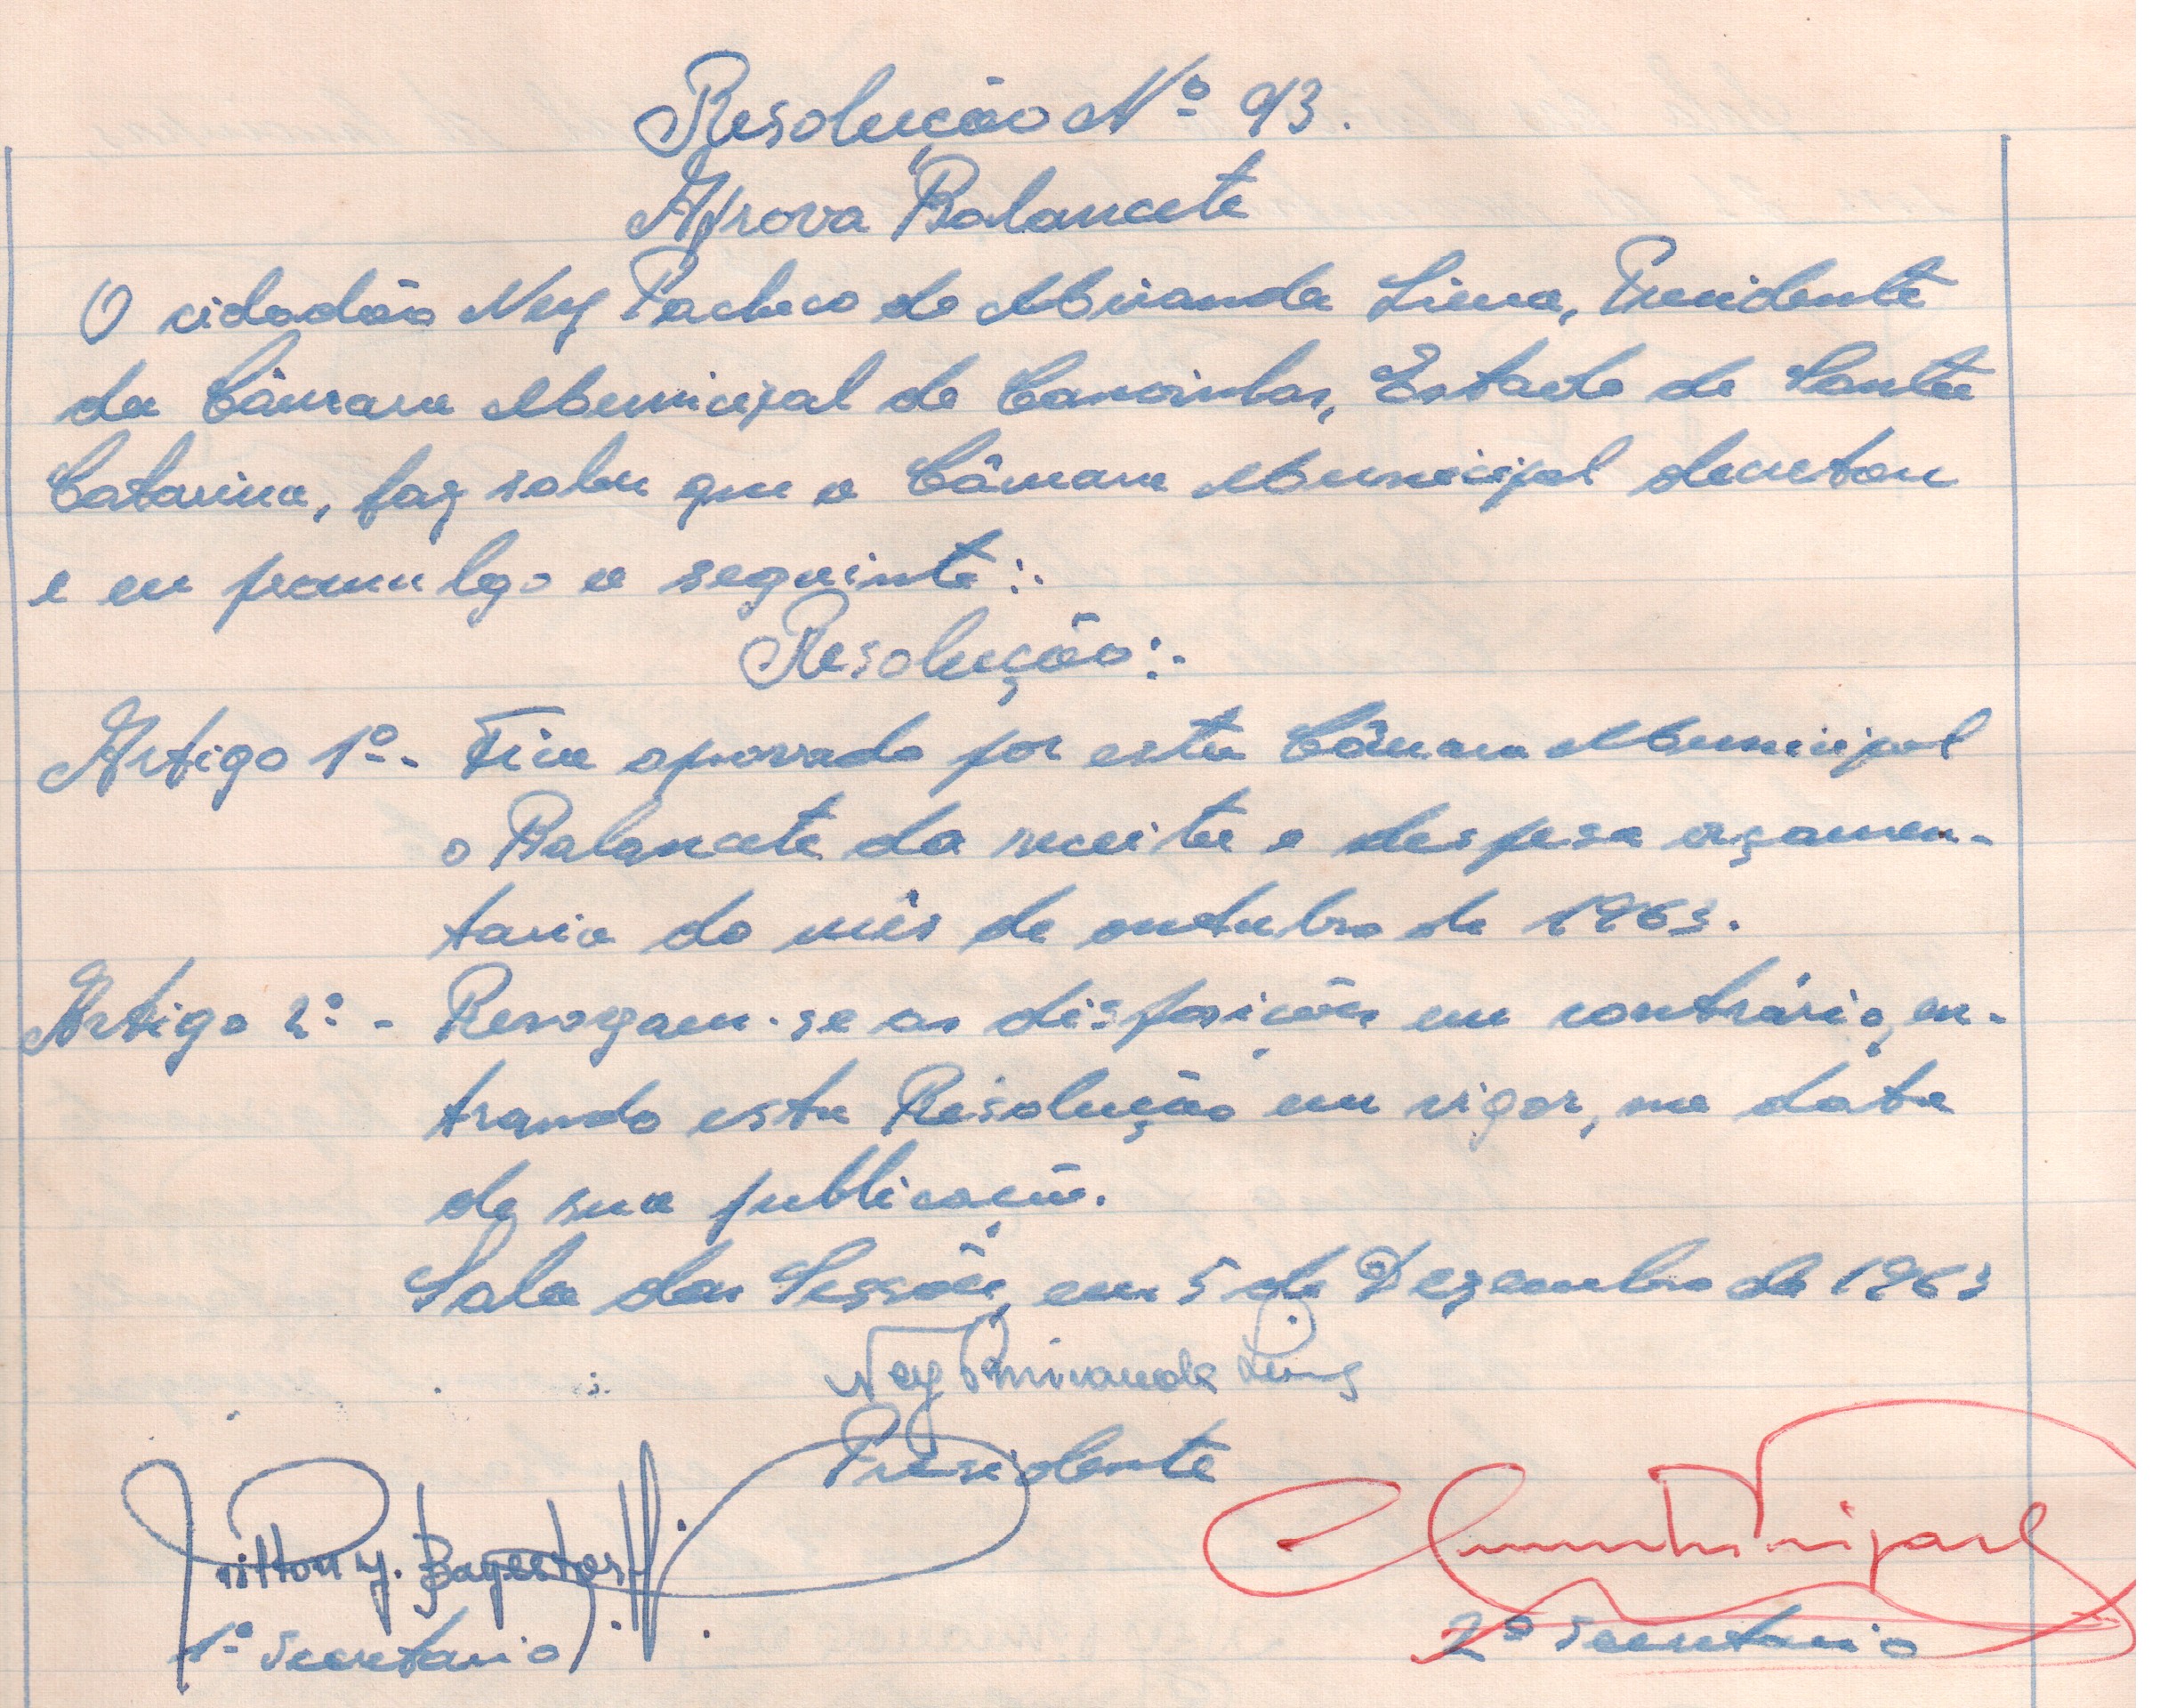 Resolução Nº 93.
Aprova Balancete
O cidadão Ney Pacheco de Miranda Lima, Presidente
da Câmara Municipal de Canoinhas, Estado de Santa
Catarina, faz saber que a Câmara Municipal decretou
e eu promulgo a seguinte:.
Resolução:.
Artigo 1º. Fica aprovado por esta Câmara Municipal
o Balancete da receita e despesa orçamen-
taria do mês de outubro de 1963.
Artigo 2º - Revogam-se as disposições em contrário, en-
trando esta Resolução em vigor, na data
de sua publicação.
Sala das Sessões, em 5 de Dezembro de 1963
Ney P. Miranda Lima
Presidente
1º Secretario
2º Secretario